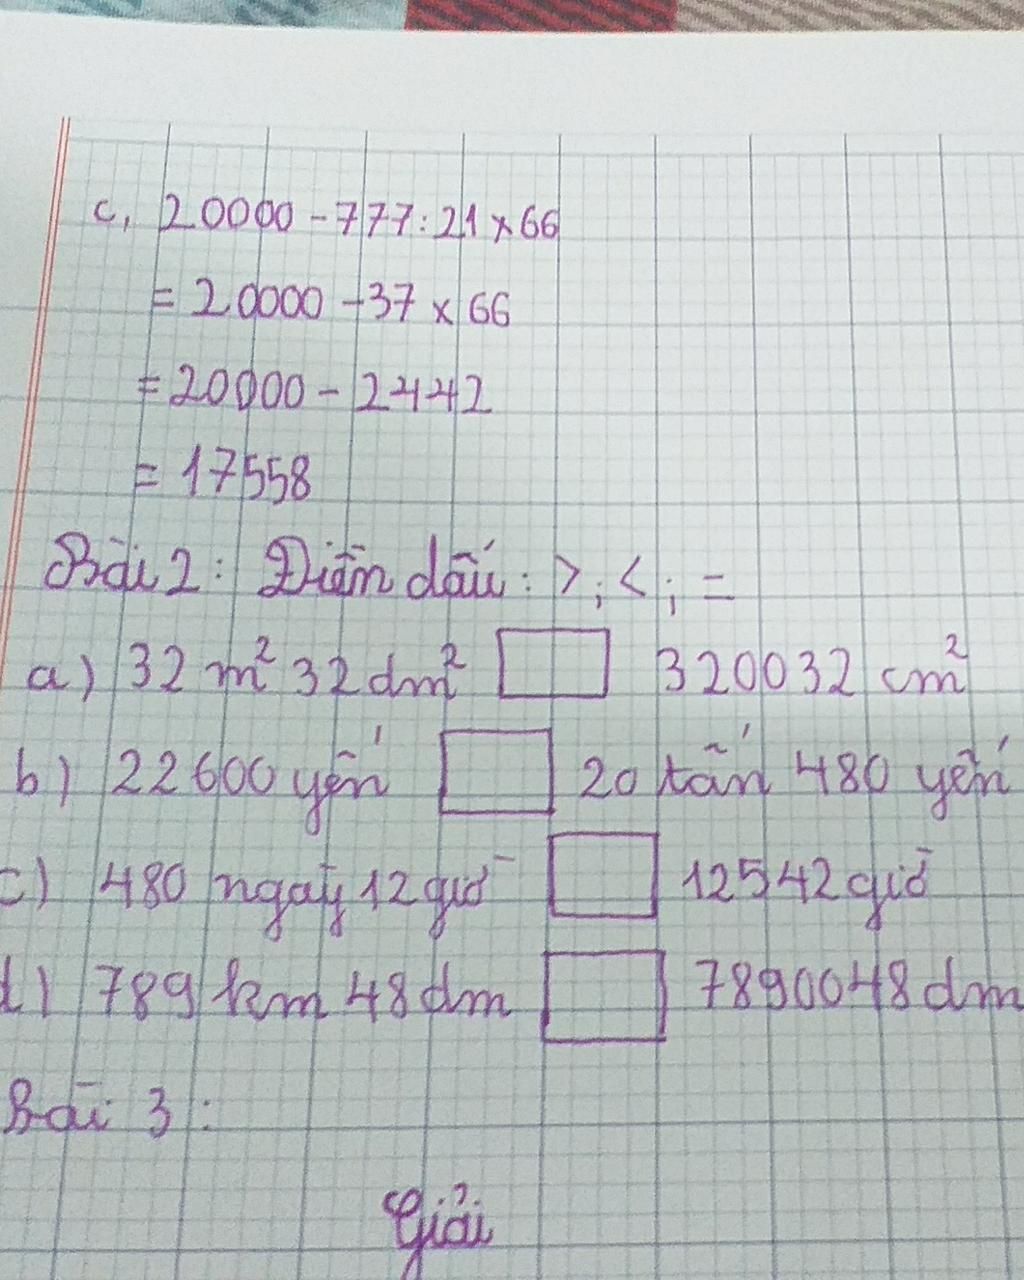 c, 20000 - 777 : 21 x 66
= 20000 - 37 x 66
= 20000 - 2442
= 17558
Bài 2 : Điền dấu : > ; < ; =
a) 32 m² 32 dm² 320032 cm²
b) 22600 yến 20 tấn 480 yến
c) 480 ngày 12 giờ 12542 giờ
d) 789 km 48 dm 7890048 dm
Bài 3 :
Giải